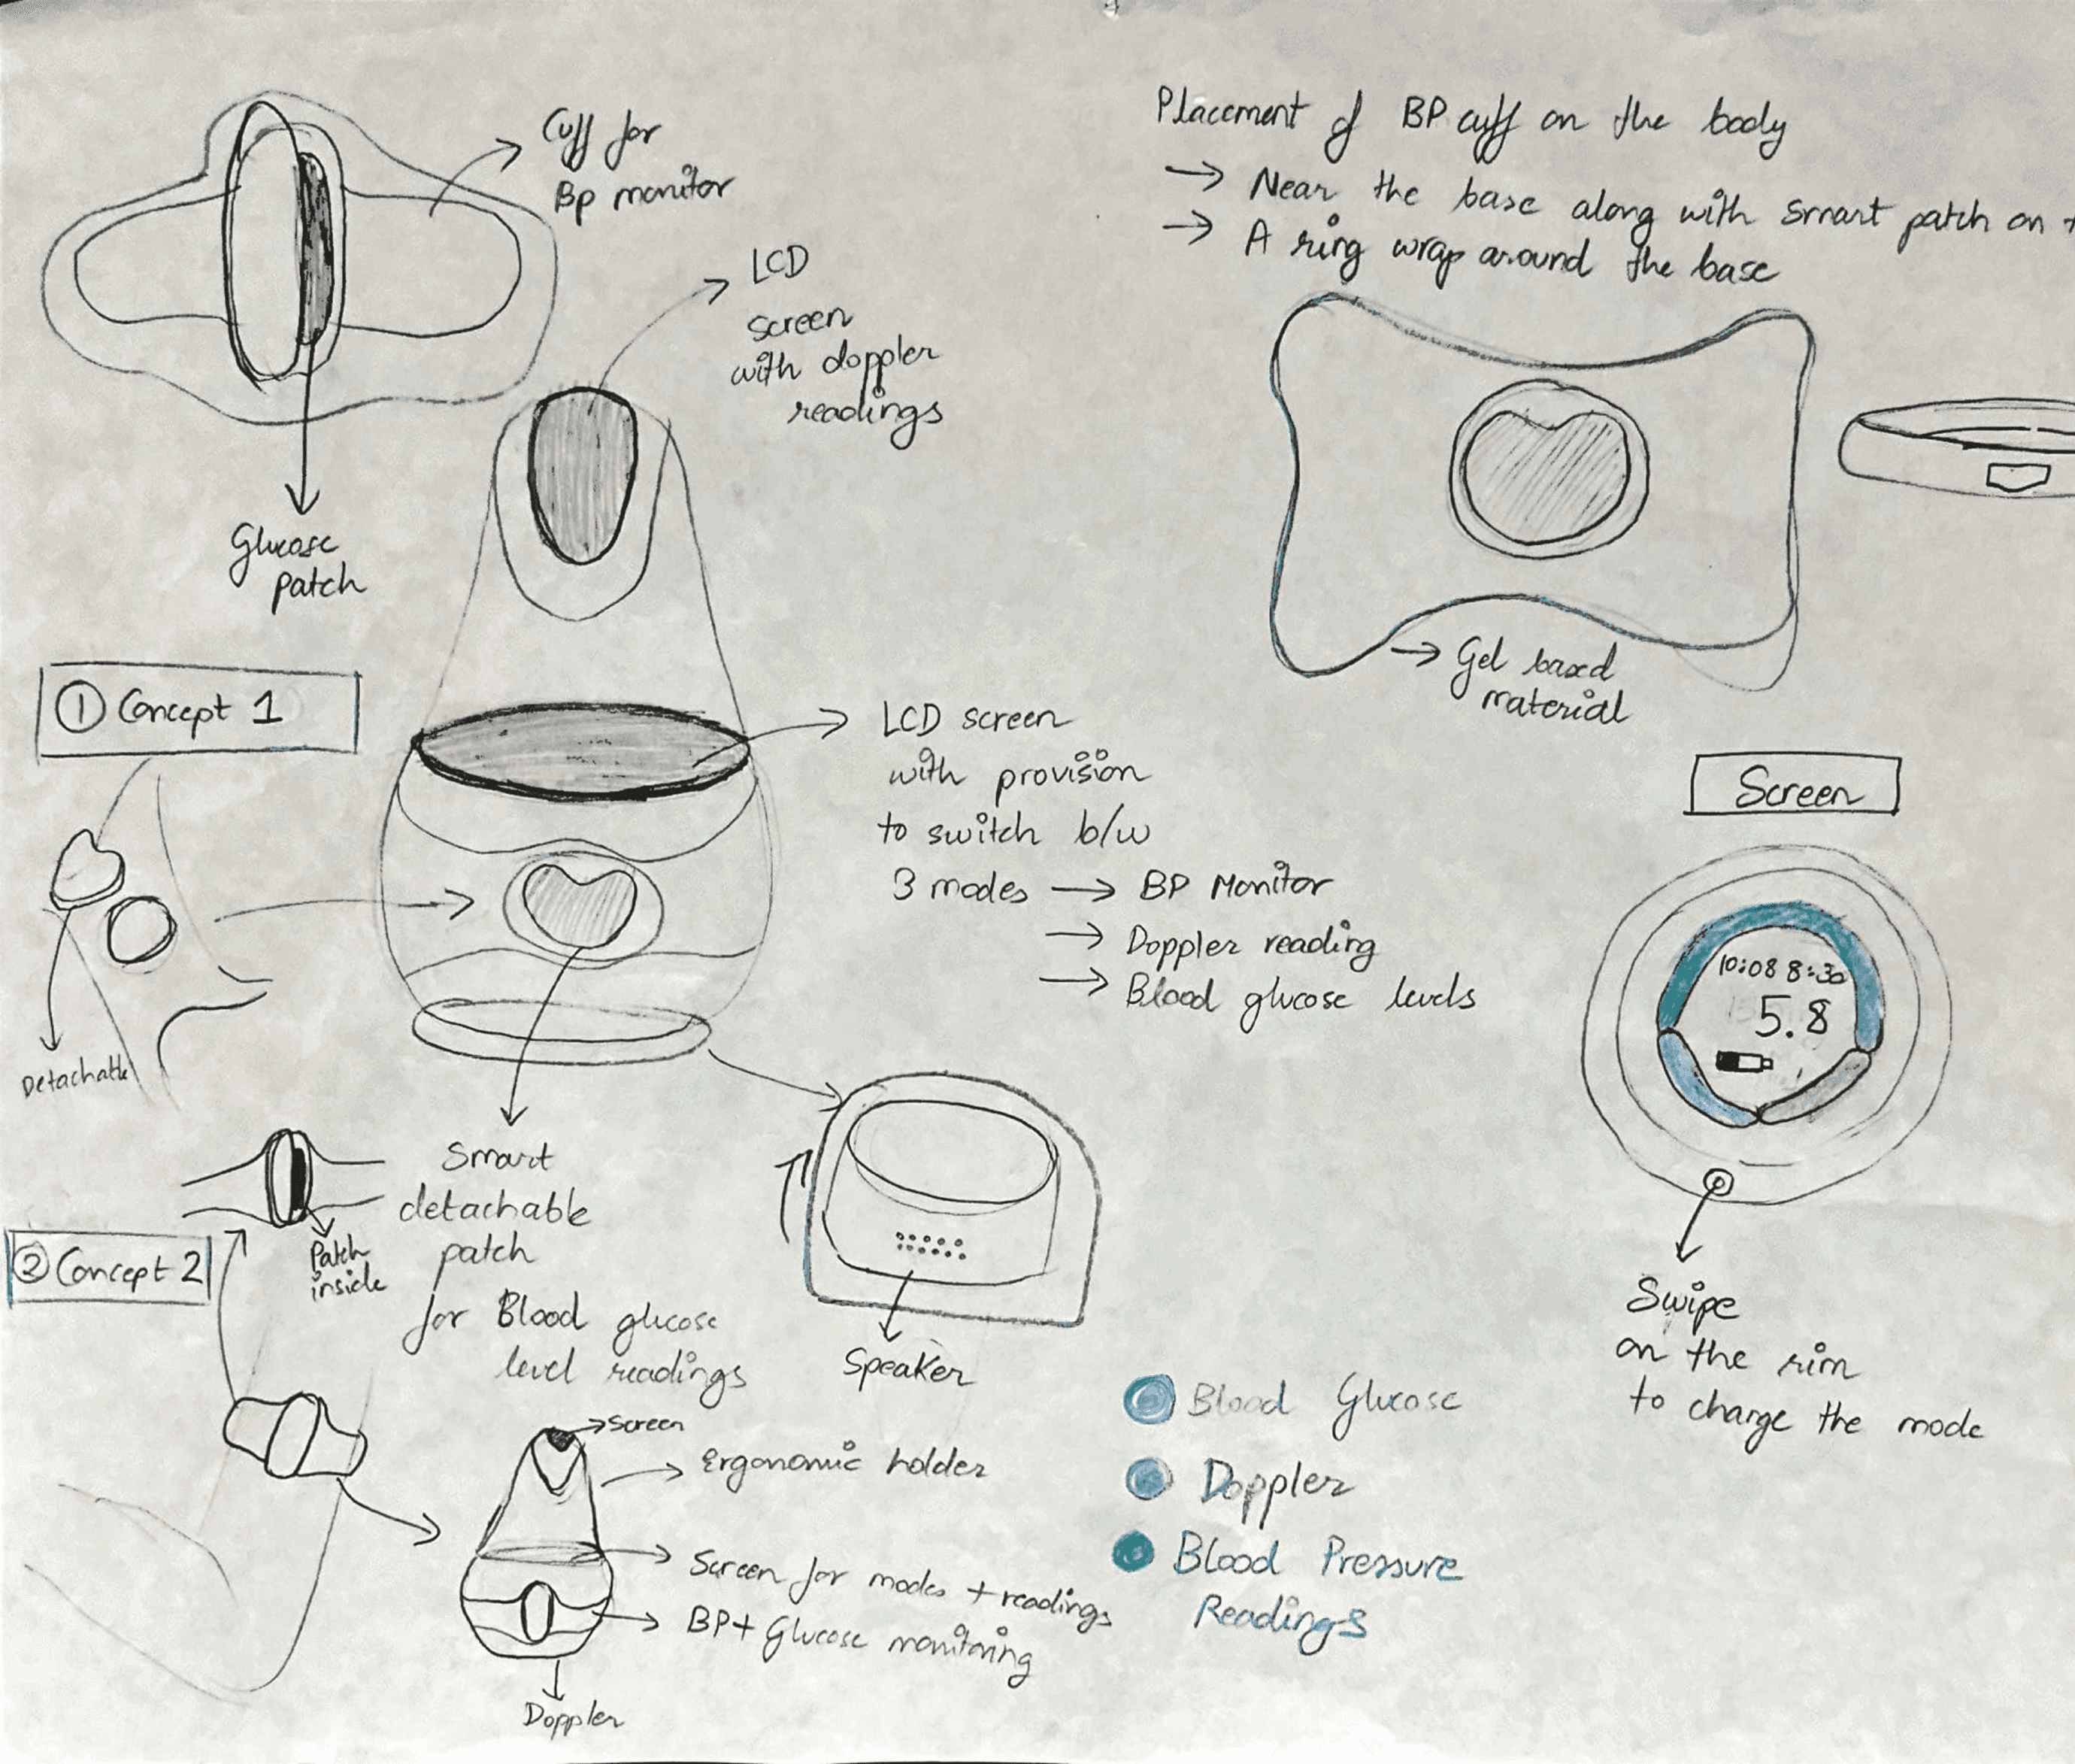 Cuff for
Bp monitor
LCD
screen
with doppler
readings
Glucose
patch
Placement of BP cuff on the body
→ Near the base along with smart patch on
→ A ring wrap around the base
→ Gel based
material
① Concept 1
LCD screen
with provision
to switch b/w
3 modes → BP Monitor
→ Doppler reading
→ Blood glucose levels
Detachable
Screen
10:08 8:30
5.8
Swipe
on the rim
to change the mode
Smart
detachable
patch
for Blood glucose
level readings
Speaker
② Concept 2
Patch
inside
Screen
Ergonomic holder
Screen for modes + readings
BP+ Glucose monitoring
Doppler
Blood Glucose
Doppler
Blood Pressure
Readings